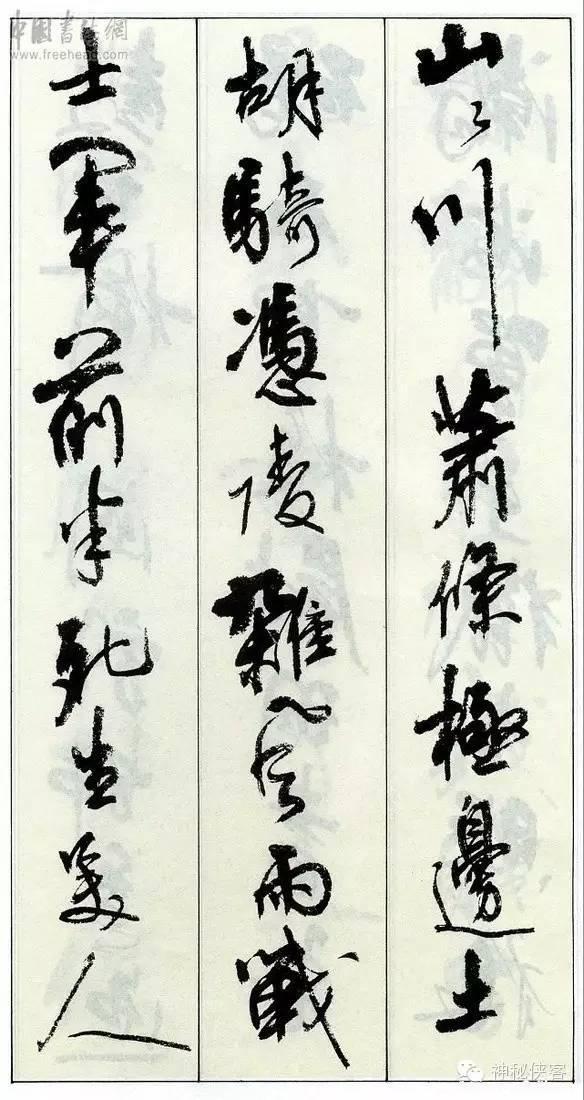 中國書法網
www.freehead.com
山〻川蕭條極邊土
胡騎憑陵雜風雨戰
士軍前半死生美人
神秘侠客